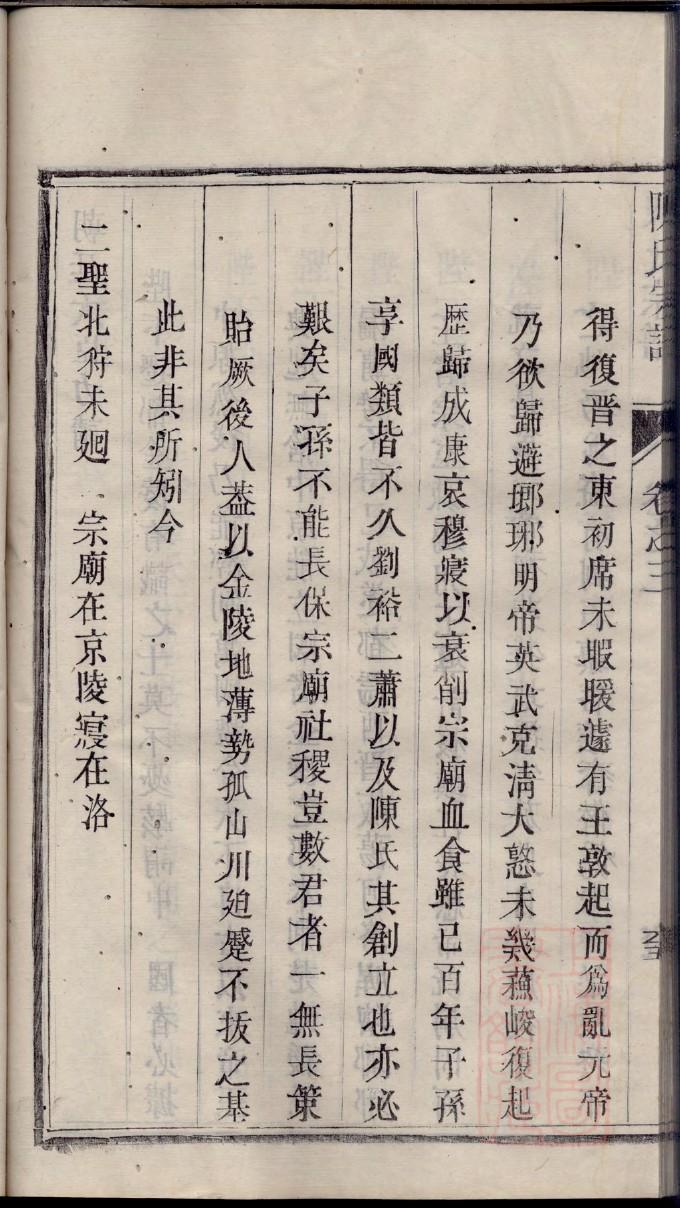 得復晋之東初席未暇暖遽有王敦起而爲亂元帝
乃欲歸避瑯琊明帝英武克淸大憝未幾蘓峻復起
歷歸成康哀穆寖以衰削宗廟血食雖已百年子孫
享國類皆不久劉裕二蕭以及陳氏其創立也亦必
艱矣子孫不能長保宗廟社稷豈數君者一無長策
貽厥後人葢以金陵地薄勢孤山川廹蹙不拔之基
此非其所矧今
二聖北狩未廻 宗廟在京陵寢在洛
卷之三